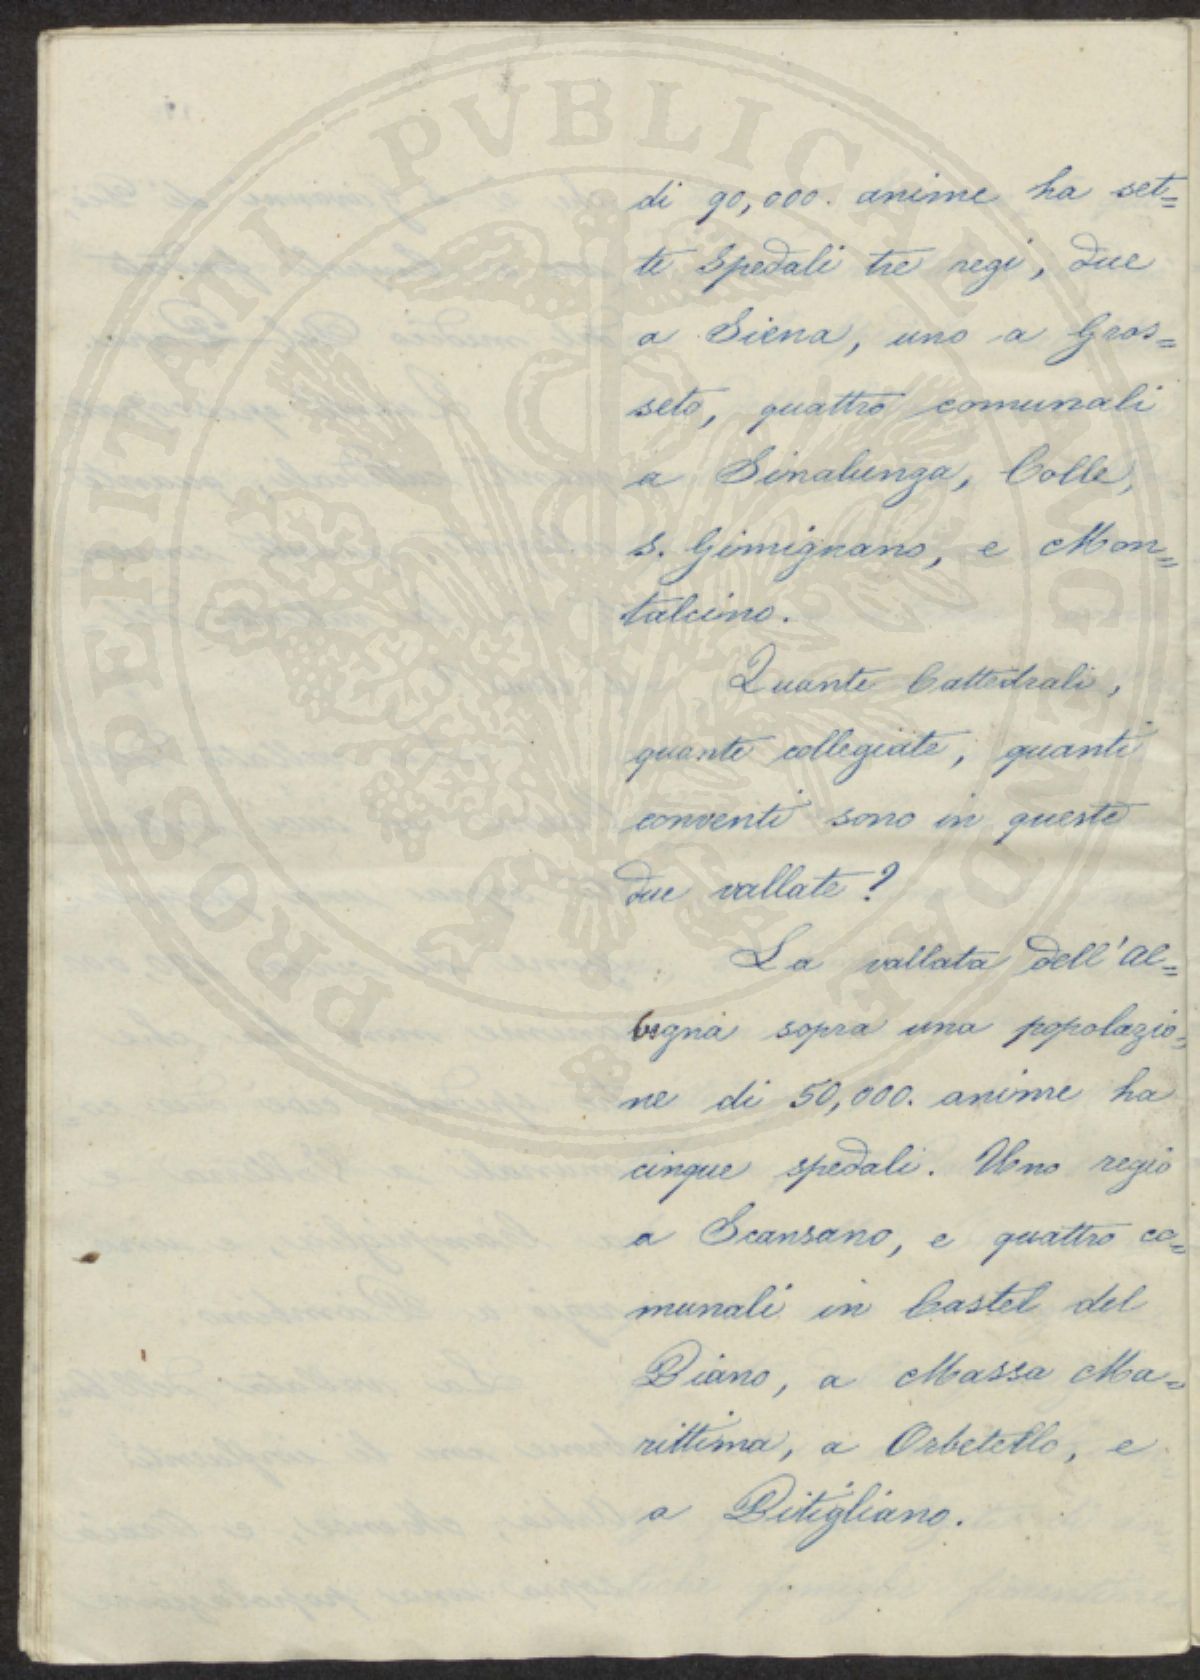 di 90,000. anime ha set=
te Spedali tre regi, due
a Siena, uno a Gros=
seto, quattro comunali
a Sinalunga, Colle,
S. Gimignano, e Mon=
talcino.
Quante Cattedrali,
quante collegiate, quanti
conventi sono in queste
due vallate?
La vallata dell'Al=
begna sopra una popolazio=
ne di 50,000. anime ha
cinque spedali. Uno regio
a Scansano, e quattro co=
munali in Castel del
Piano, a Massa Ma=
rittima, a Orbetello, e
a Pitigliano.
PROSPERITATI PVBLICAE AVGENDAE